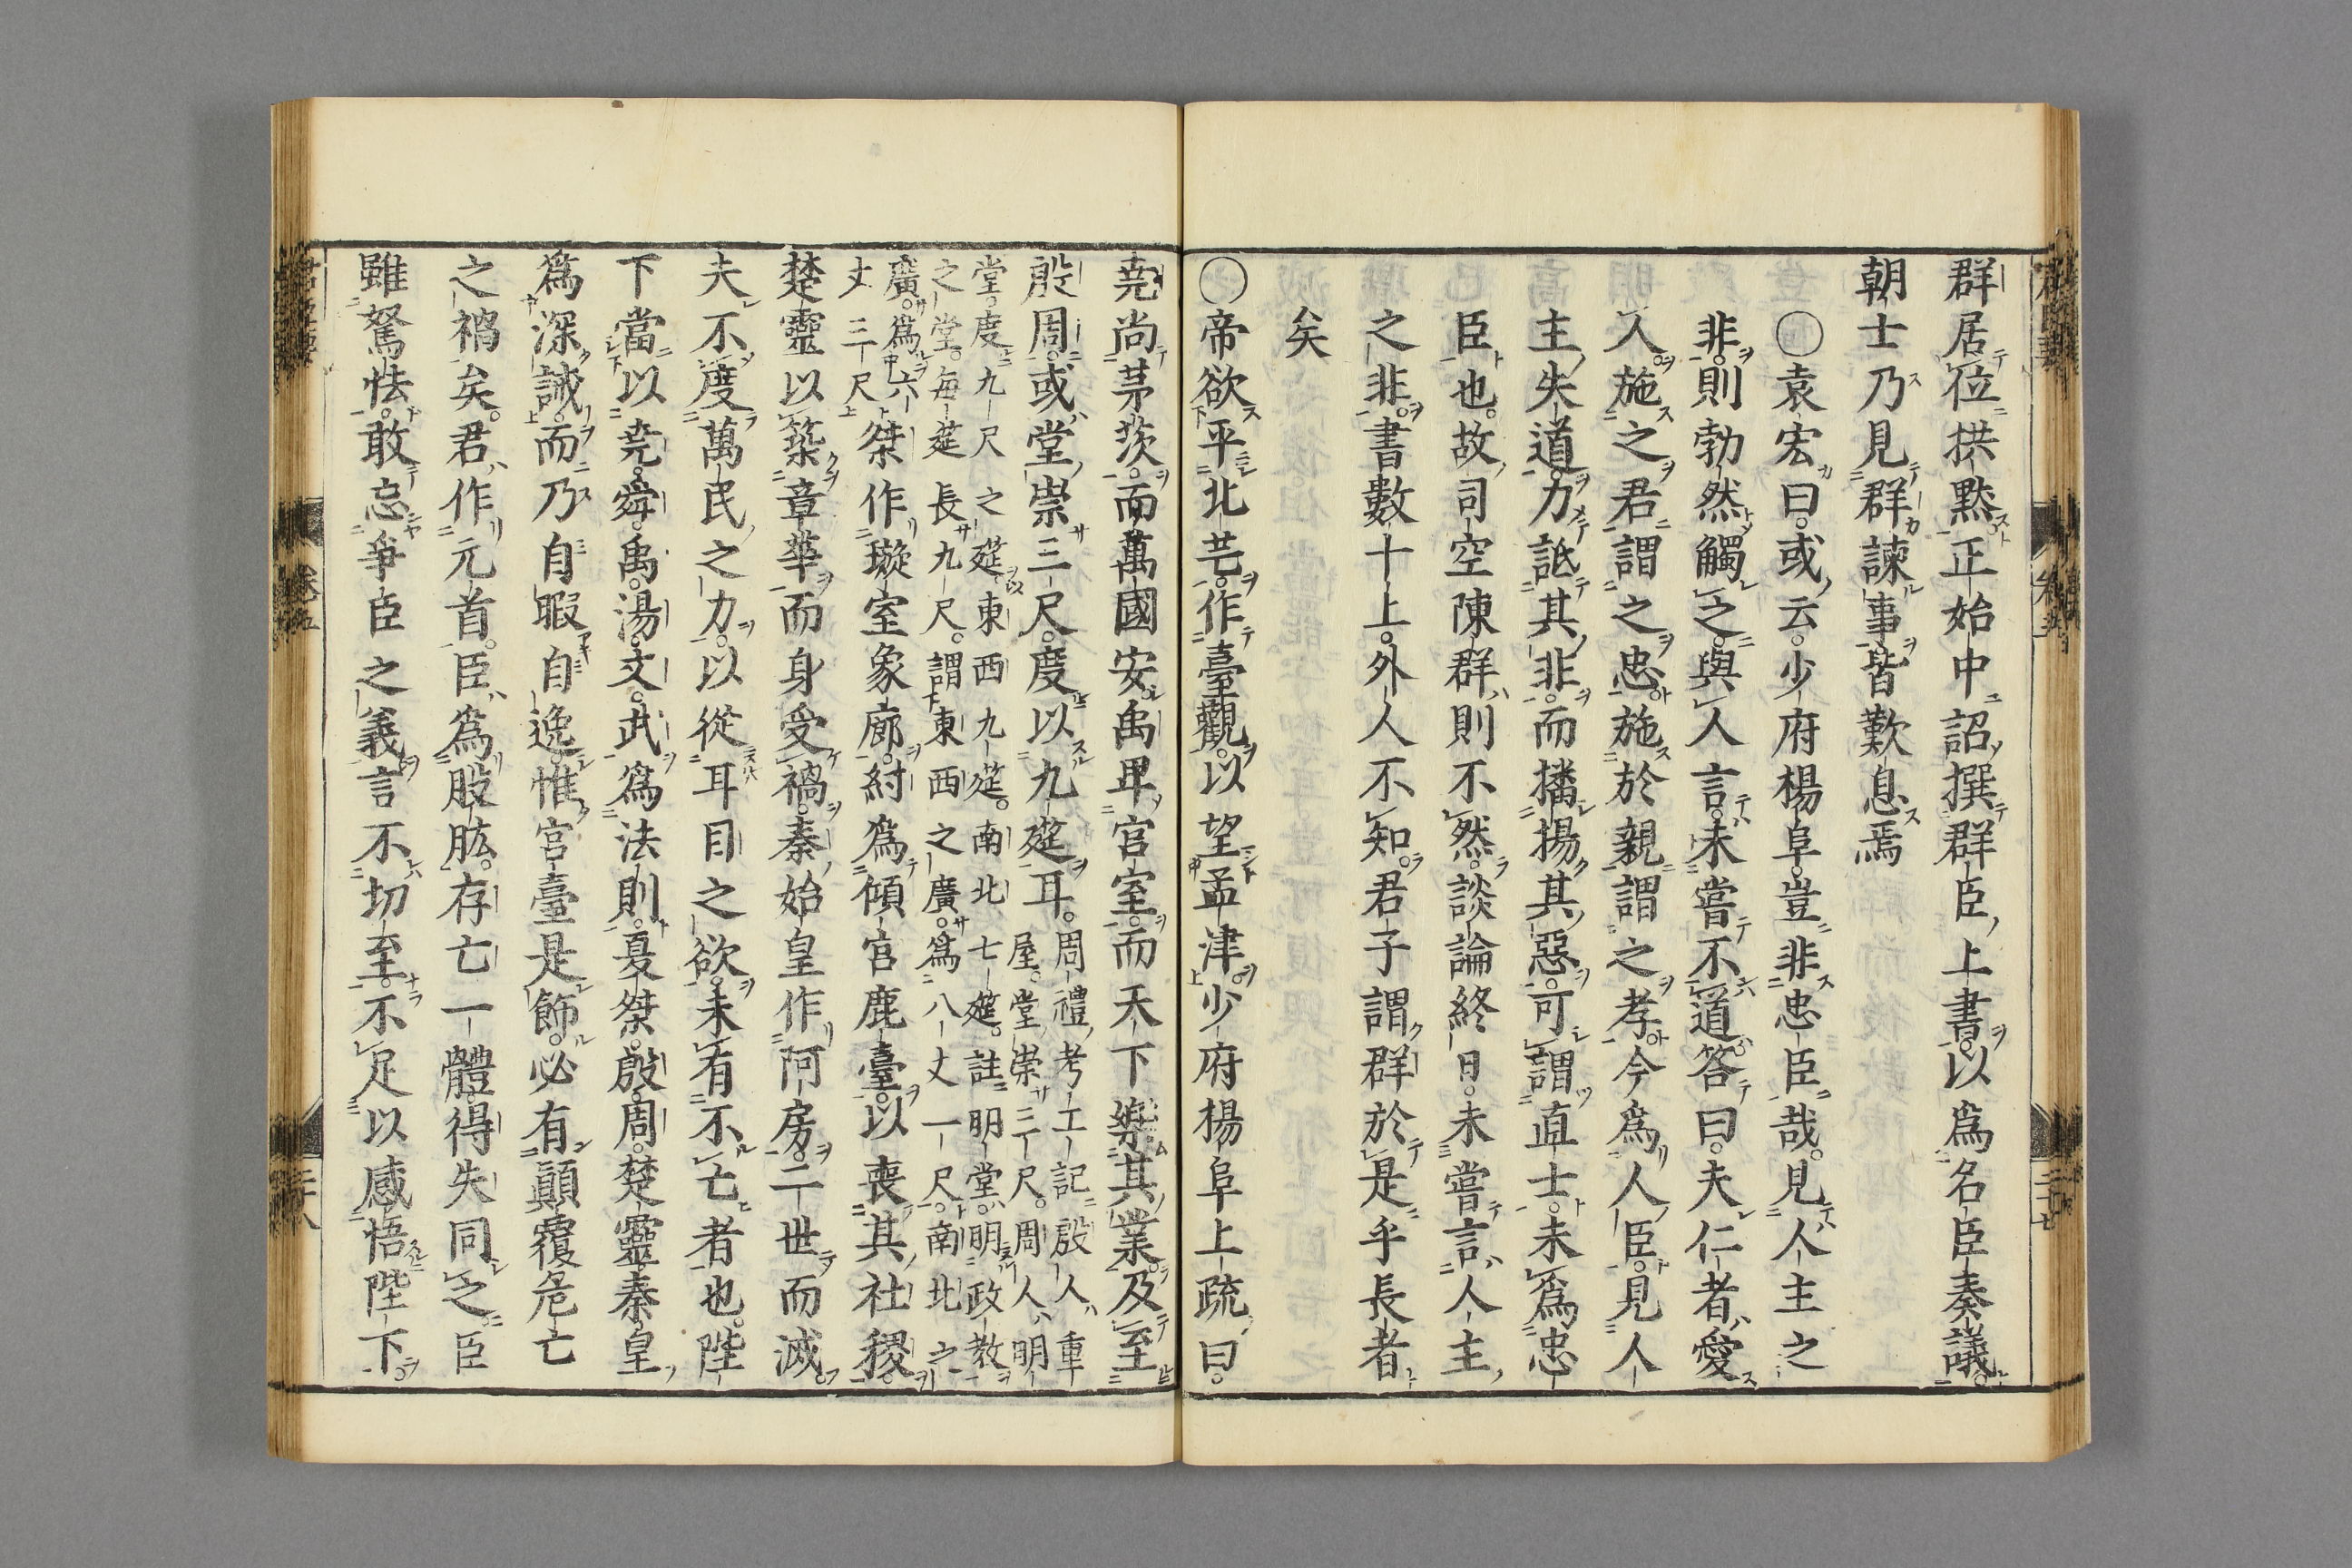 群居位拱黙正始中詔撰群臣上書以爲名臣奏議
朝士乃見群諫事皆歎息焉
〇袁宏曰或云少府楊阜豈非忠臣哉見人主之
非則勃然觸之與人言未嘗不道答曰夫仁者愛
人施之君謂之忠施於親謂之孝今爲人臣見人
主失道力詆其非而播揚其惡可謂直士未爲忠
臣也故司空陳群則不然談論終日未嘗言人主
之非書數十上外人不知君子謂群於是乎長者
矣
〇帝欲平北芒作臺觀以望孟津少府楊阜上疏曰
堯尚茅茨而萬國安禹卑宮室而天下樂其業及至
殷周或堂崇三尺度以九筵耳周禮考工記殷人重
屋堂崇三尺周人明
堂度九尺之筵東西九筵南北七筵註明堂明政教
之堂每筵長九尺謂東西之廣爲八丈一尺南北之
廣爲六
丈三尺
桀作璇室象廊紂爲傾宮鹿臺以喪其社稷
楚靈以築章華而身受禍秦始皇作阿房二世而滅
夫不度萬民之力以從耳目之欲未有不亡者也陛
下當以堯舜禹湯文武爲法則夏桀殷周楚靈秦皇
爲深誡而乃自暇自逸惟宮臺是飾必有顚覆危亡
之禍矣君作元首臣爲股肱存亡一體得失同之臣
雖駑怯敢忘爭臣之義言不切至不足以感悟陛下
卷五
二十八
卷五
二十七